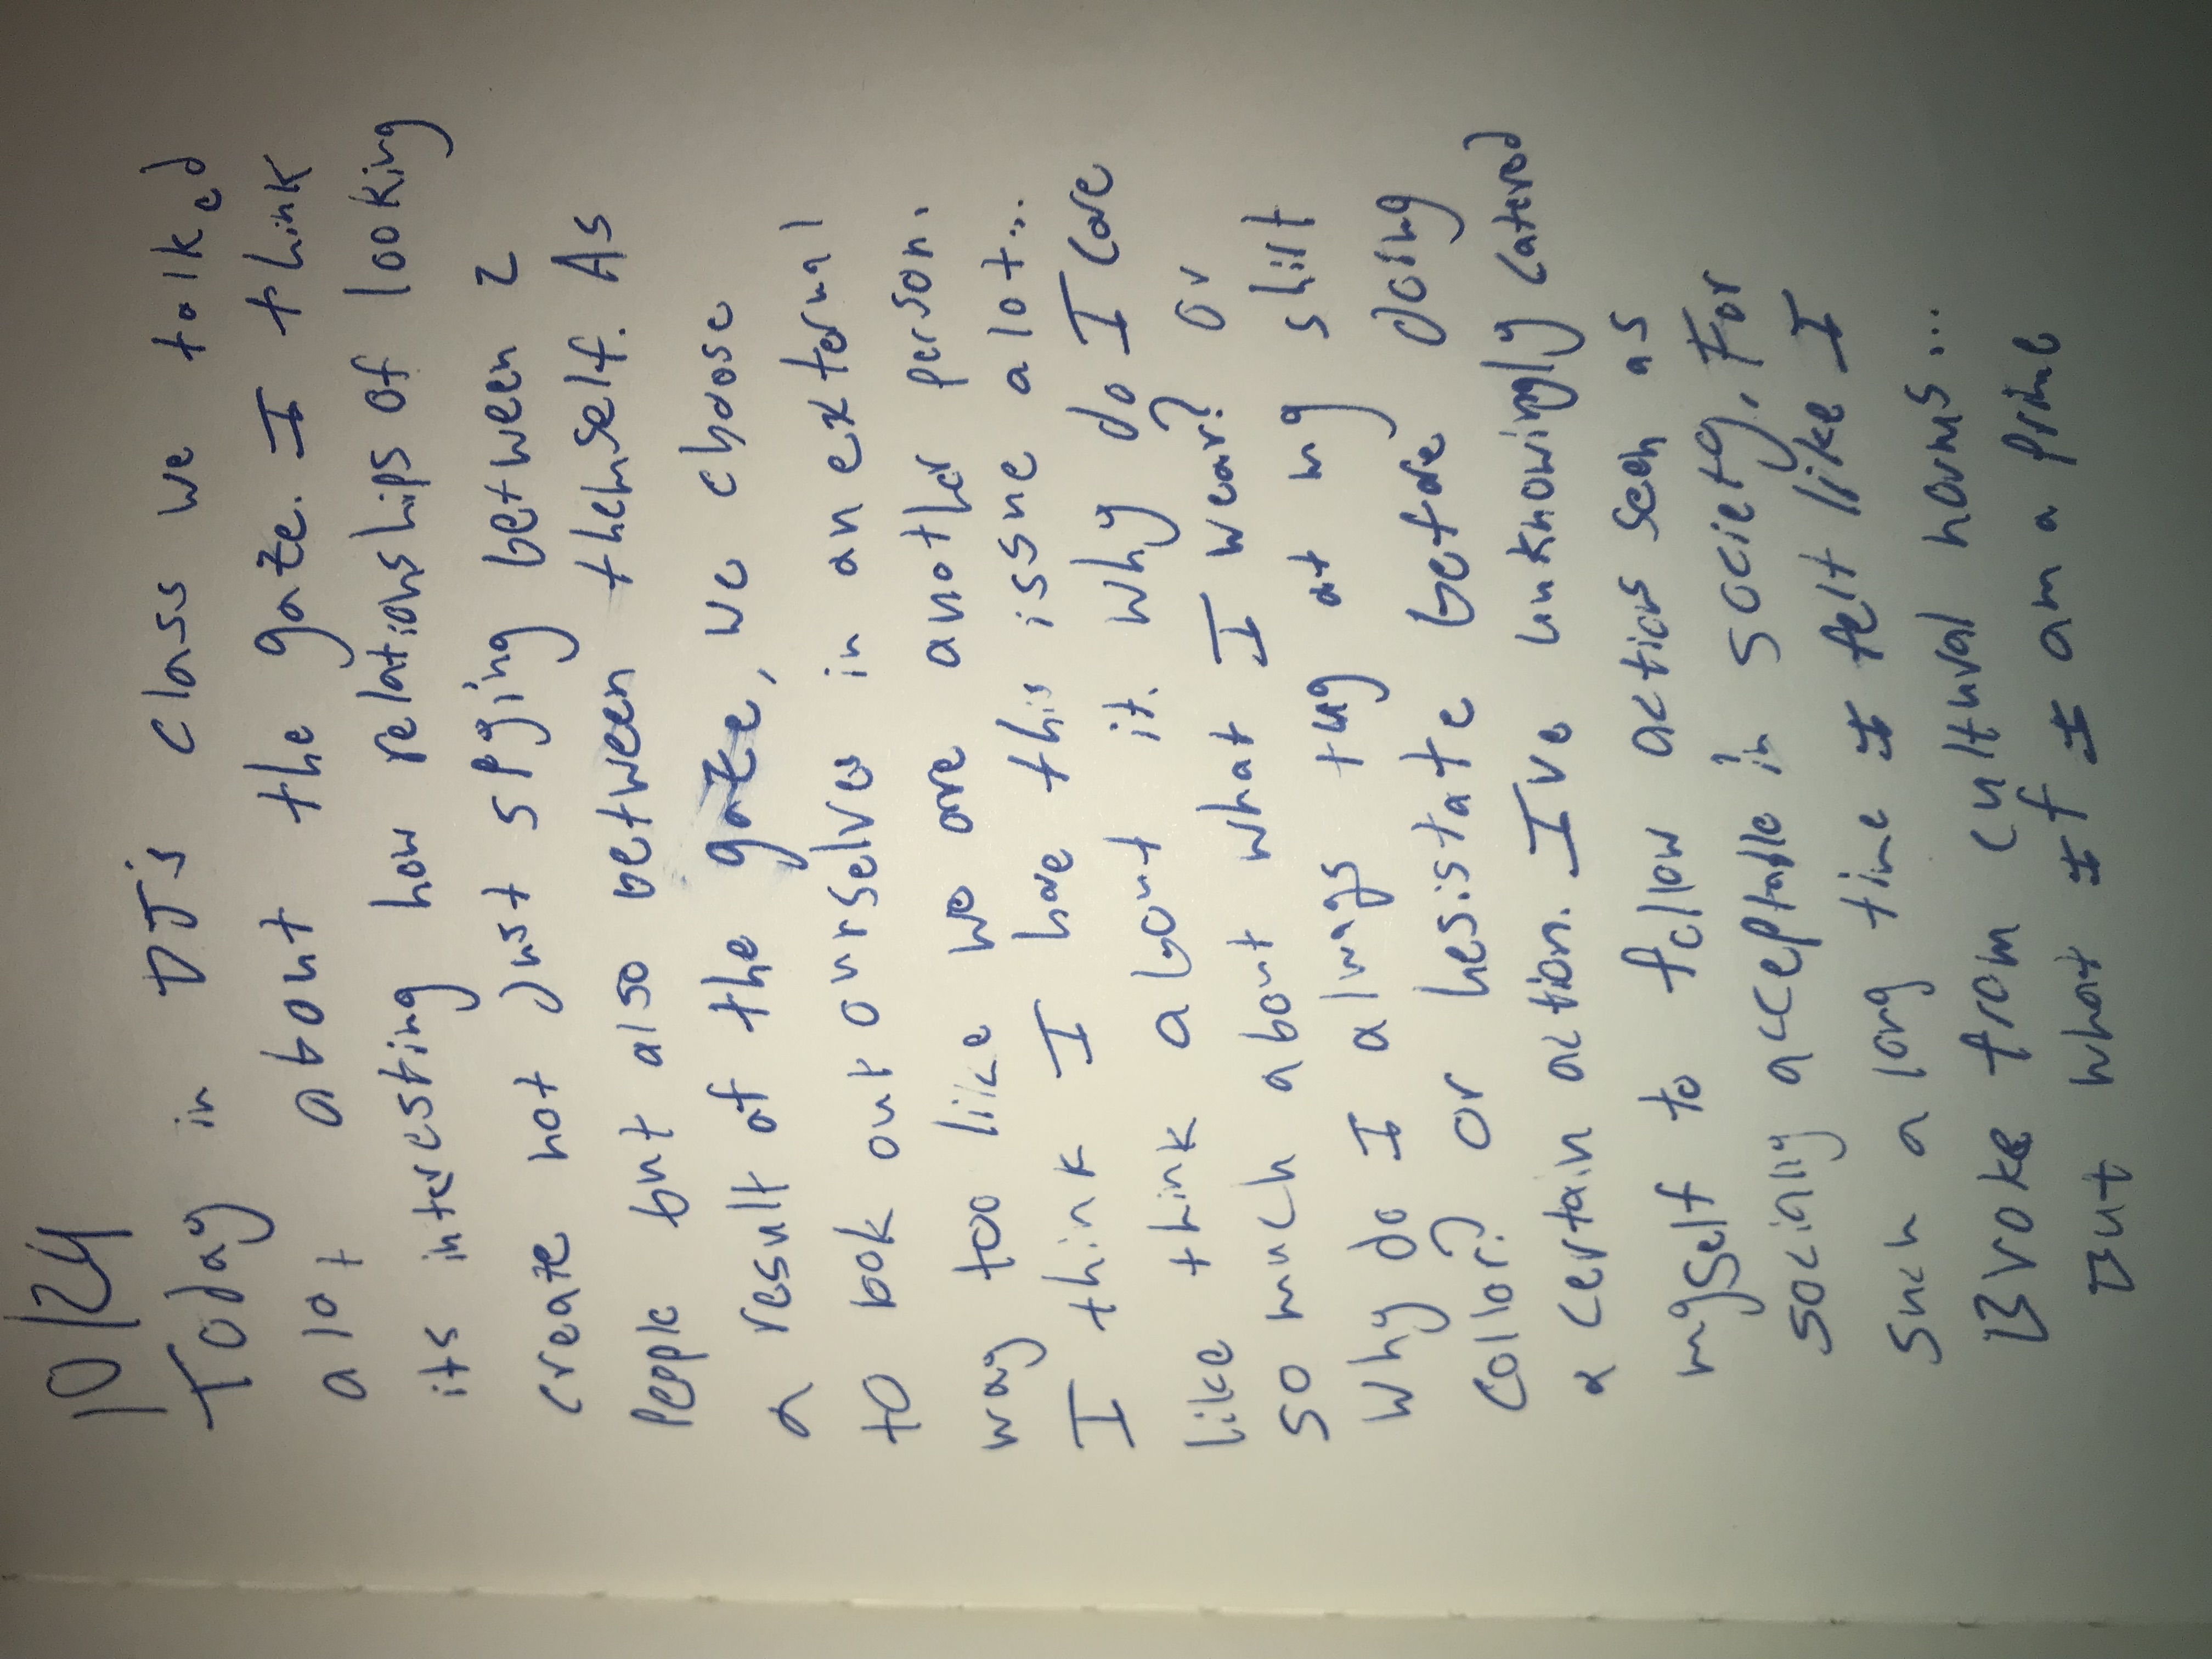 10/24
Today in DJ's class we talked
a lot about the gaze. I think
its interesting how relationships of looking
create not Just spying between 2
People but also between themself. As
a result of the gaze, we choose
to look out ourselves in an external
way too like we are another person.
I think I have this issue a lot...
like think about it. Why do I care
so much about what I wear? or
Why do I always tug at my shirt
collar? or hesistate before doing
a certain action. I've unknowingly catered
myself to follow actions seen as
socially acceptable in society. For
such a long time I felt like I
Broke from cultural norms...
But what If I am a prime